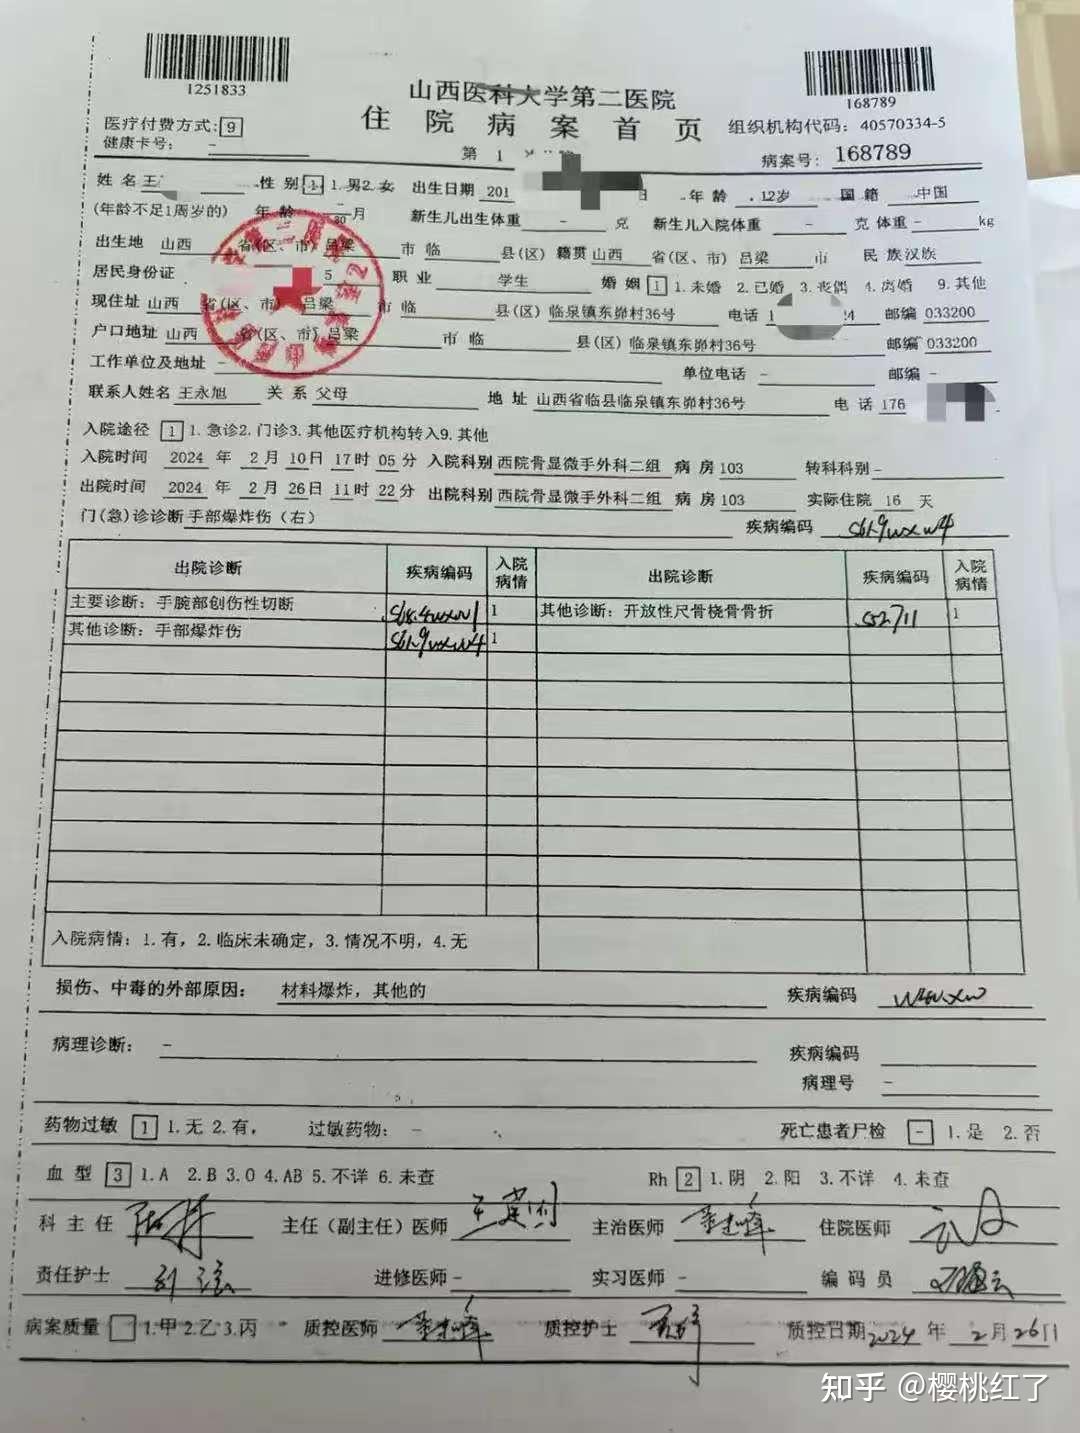 1251833
168789
山西医科大学第二医院
住院病案首页
医疗付费方式：9
组织机构代码：40570334-5
健康卡号： -
第 1
病案号：168789
姓名 王 性别 1 1.男2.女 出生日期 201 日 年龄 12岁 国籍 中国
(年龄不足1周岁的) 年龄 - 月 新生儿出生体重 - 克 新生儿入院体重 - 克 体重 - kg
出生地 山西 省(区、市) 吕梁 市 临 县(区) 籍贯 山西 省(区、市) 吕梁 市 民族 汉族
居民身份证 5 职业 学生 婚姻 1 1.未婚 2.已婚 3.丧偶 4.离婚 9.其他
现住址 山西 省(区、市) 吕梁 市 临 县(区) 临泉镇东峁村36号 电话 1 24 邮编 033200
户口地址 山西 省(区、市) 吕梁 市 临 县(区) 临泉镇东峁村36号 邮编 033200
工作单位及地址 - 单位电话 - 邮编 -
联系人姓名 王永旭 关系 父母 地址 山西省临县临泉镇东峁村36号 电话 176
入院途径 1 1.急诊2.门诊3.其他医疗机构转入9.其他
入院时间 2024 年 2 月 10 日 17 时 05 分 入院科别 西院骨显微手外科二组 病房 103 转科科别 -
出院时间 2024 年 2 月 26 日 11 时 22 分 出院科别 西院骨显微手外科二组 病房 103 实际住院 16 天
门(急)诊诊断 手部爆炸伤（右） 疾病编码
出院诊断 疾病编码 入院病情 出院诊断 疾病编码 入院病情
主要诊断：手腕部创伤性切断 1 其他诊断：开放性尺骨桡骨骨折 1
其他诊断：手部爆炸伤 1
入院病情：1.有，2.临床未确定，3.情况不明，4.无
损伤、中毒的外部原因： 材料爆炸，其他的 疾病编码
病理诊断： - 疾病编码
病理号 -
药物过敏 1 1.无 2.有， 过敏药物： - 死亡患者尸检 - 1.是 2.否
血型 3 1.A 2.B 3.O 4.AB 5.不详 6.未查 Rh 2 1.阴 2.阳 3.不详 4.未查
科主任 主任（副主任）医师 主治医师 住院医师
责任护士 进修医师 - 实习医师 - 编码员
病案质量 1.甲 2.乙 3.丙 质控医师 质控护士 质控日期 2024 年 2 月 26 日
知乎 @樱桃红了